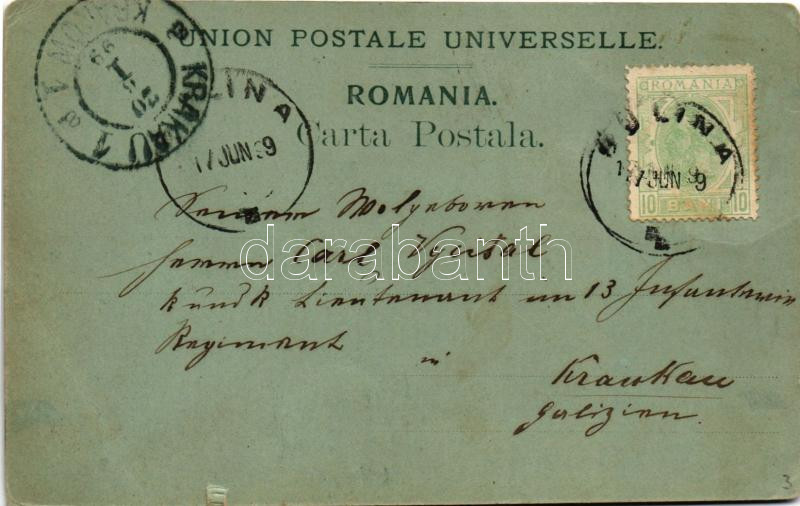 UNION POSTALE UNIVERSELLE.
ROMANIA.
Carta Postala.
KRAKAU 1
SULINA
17 JUN 9
ROMANIA
10 BANI 10
Seinem Wolgeboren
Herrn Carl
k und k Lieutenant im 13 Infanterie
Regiment
in
Krawkau
Galizien.
darabanth
3